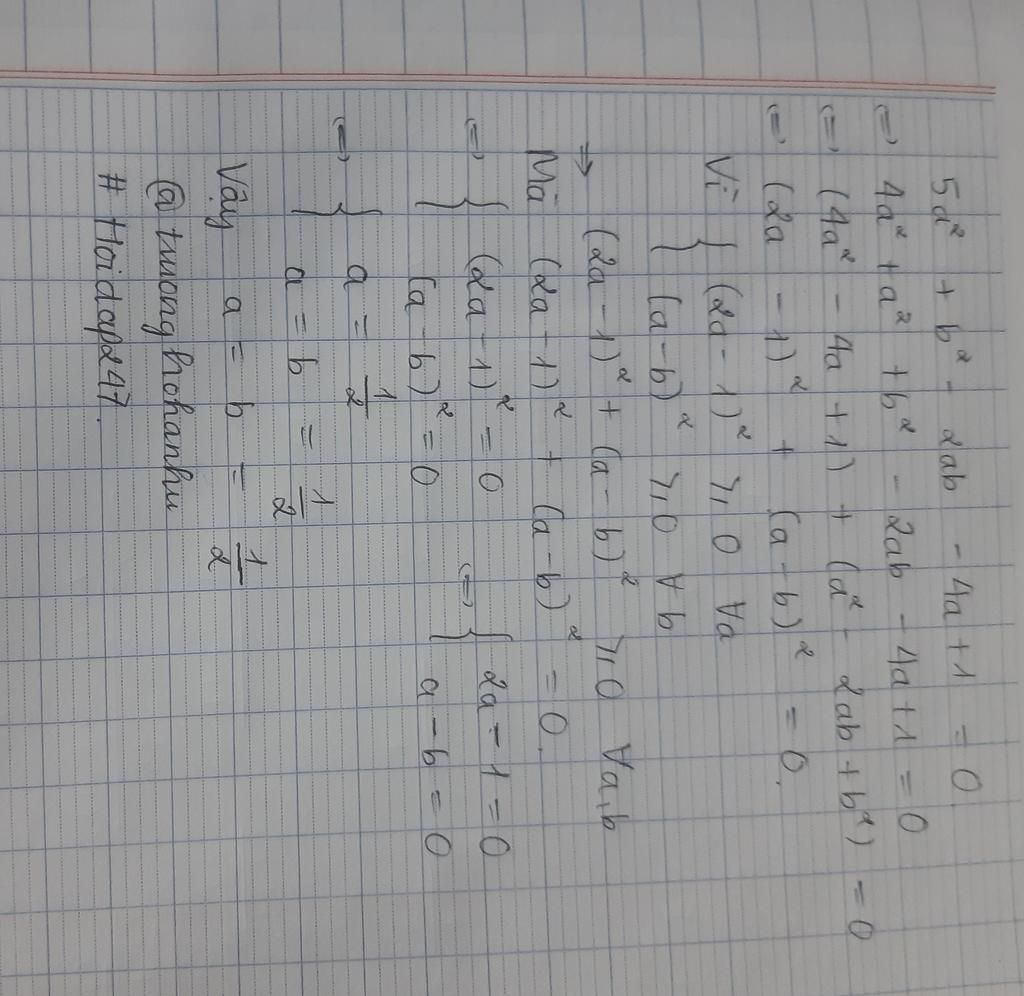 5a² + b² - 2ab - 4a + 1 = 0
⇔ 4a² + a² + b² - 2ab - 4a + 1 = 0
⇔ (4a² - 4a + 1) + (a² - 2ab + b²) = 0
⇔ (2a - 1)² + (a - b)² = 0.
Vì { (2a - 1)² ≥ 0 ∀a
(a - b)² ≥ 0 ∀ b
⇒ (2a - 1)² + (a - b)² ≥ 0 ∀a,b
Mà (2a - 1)² + (a - b)² = 0.
⇔ { (2a - 1)² = 0 ⇔ { 2a - 1 = 0
(a - b)² = 0 a - b = 0
⇔ { a = 1/2
a = b = 1/2
Vậy a = b = 1/2
@truonghohanhu
# Hoidap247.